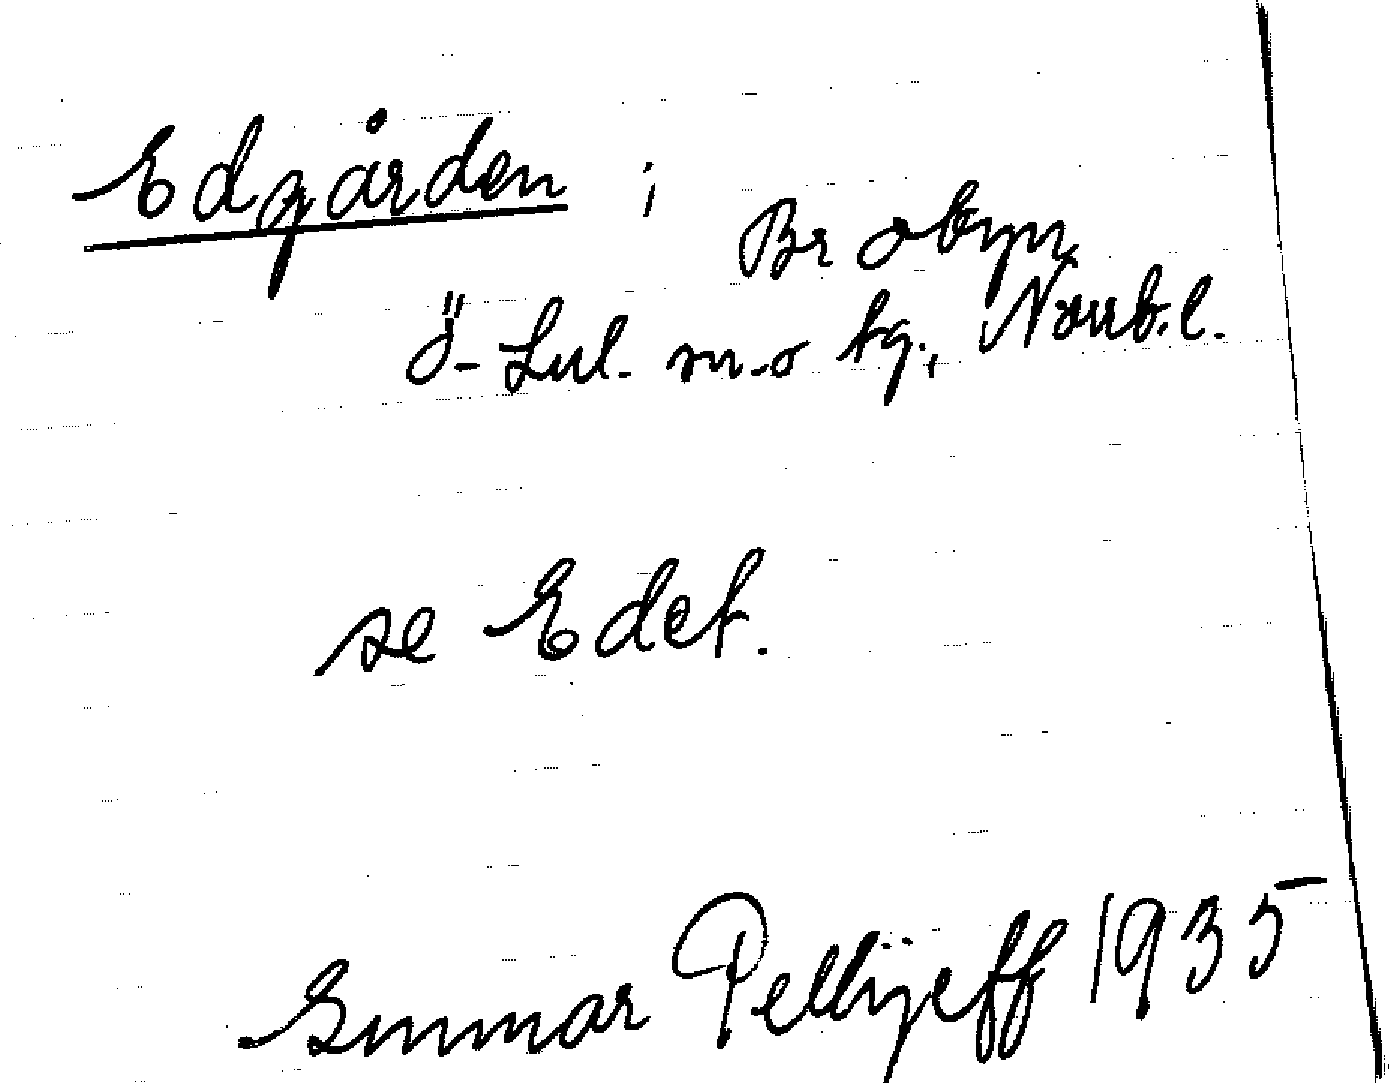 Edgården i
Brobyn
Ö-Lul. sn.o tg., Norrb.l.
se Edet.
Gunnar Pellijeff 1935